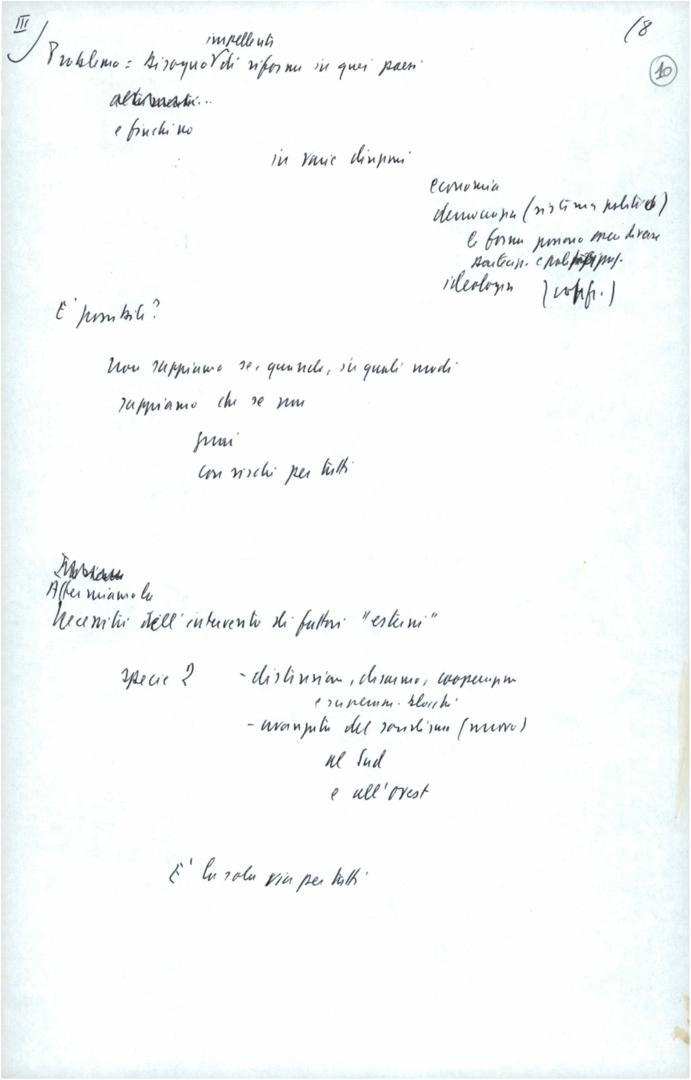 III
18
10
impellenti
Problema = Bisogno di riforme in quei paesi
e finché no
in varie direzioni
economia
democrazia (sistema politico)
le forme possono essere diverse
partecip. e
ideologia
È possibile?
Non sappiamo se, quando, in quali modi
sappiamo che se non
guai
con rischi per tutti
Affermiamo la
Necessità dell'intervento di fattori "esterni"
specie 2 - distensione, disarmo, cooperazione
e superam. blocchi
- avanzata del socialismo (nuovo)
al Sud
e all'Ovest
È la sola via per tutti